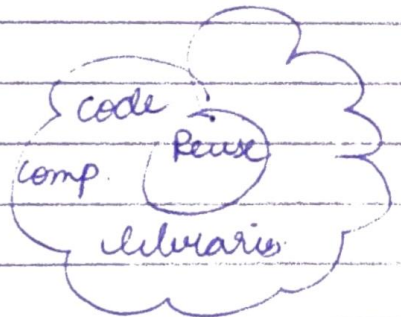 code
Reuse
comp.
libraries